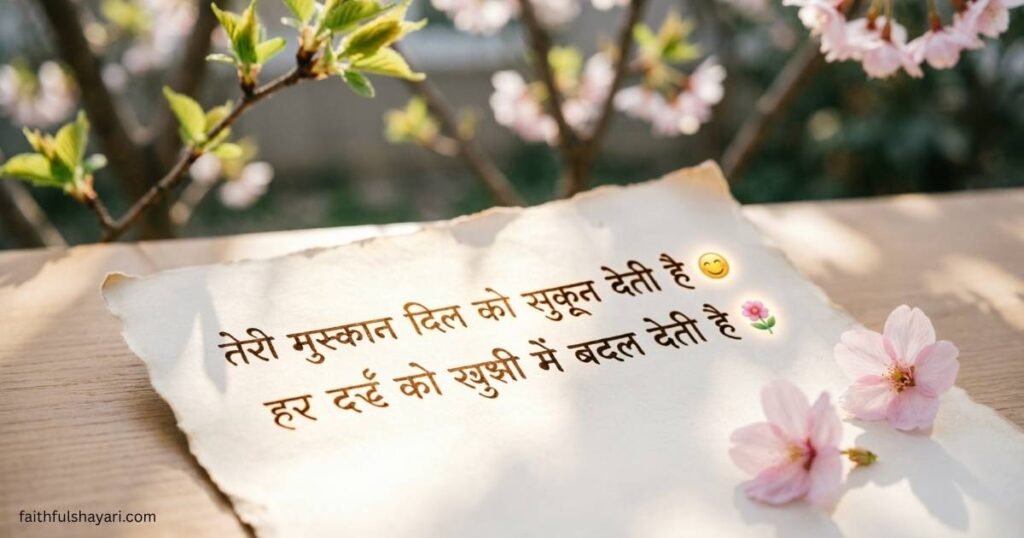 तेरी मुस्कान दिल को सुकून देती है 😊
हर को खुशी में बदल देती है 🌸
faithfulshayari.com